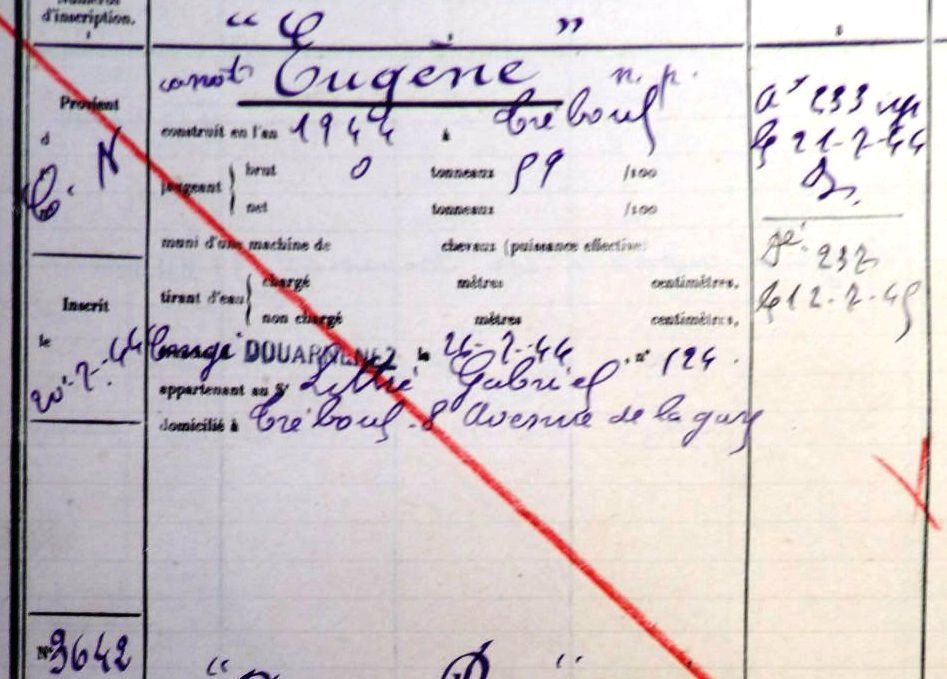 Numéros
d'inscription.
" E "
canot Eugène n. p.
construit en l'an 1944 à Tréboul
Provient
d
C. N
jaugeant brut 0 tonneaux 59 /100
net tonneaux /100
muni d'une machine de chevaux (puissance effective)
tirant d'eau chargé mètres centimètres,
non chargé mètres centimètres,
Inscrit
le
20-7-44
Congé DOUARNENEZ le 21-7-44, n° 124.
appartenant au Sr Gabriel
domicilié à Tréboul. 8 Avenue de la gare
at 233
le 21-7-44
232
le 12-7-45
N° 3642
" "